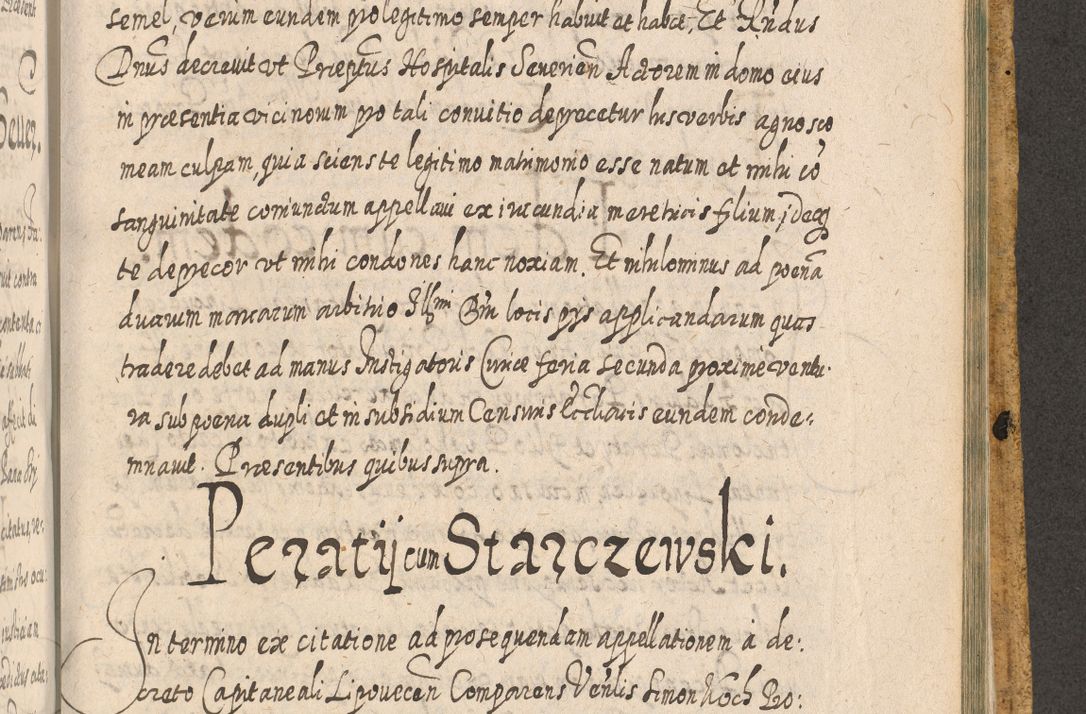 semel, verum eundem pro legitimo semper habuit et habet, Et Rñdus
Dnus decrevit vt Præptus Hospitalis Severien Actorem in domo eius
in præsentia vicinorum pro tali convitio deprecetur his verbis agnosco
meam culpam, quia sciens te legitimo matrimonio esse natum et mihi cõ
sanguinitate coniunctum appellavi ex iracundia meretricis filium, ideoq
te deprecor vt mihi condones hanc noxiam. Et nihilominus ad poenã
duarum marcarum arbitrio Illmi locis pys applicandarum quas
tradere debet ad manus Instigatoris Curiæ feria secunda proxime ventu:
ra sub poena dupli et in subsidium Censuris Ecclicis eundem conde:
mnavit. Præsentibus quibus supra.
Pezatij cum Starczewski.
In termino ex citatione ad prosequendam appellationem à de:
creto Capitaneali Lipovecen Comparens Venlis Simon Koch Pro: